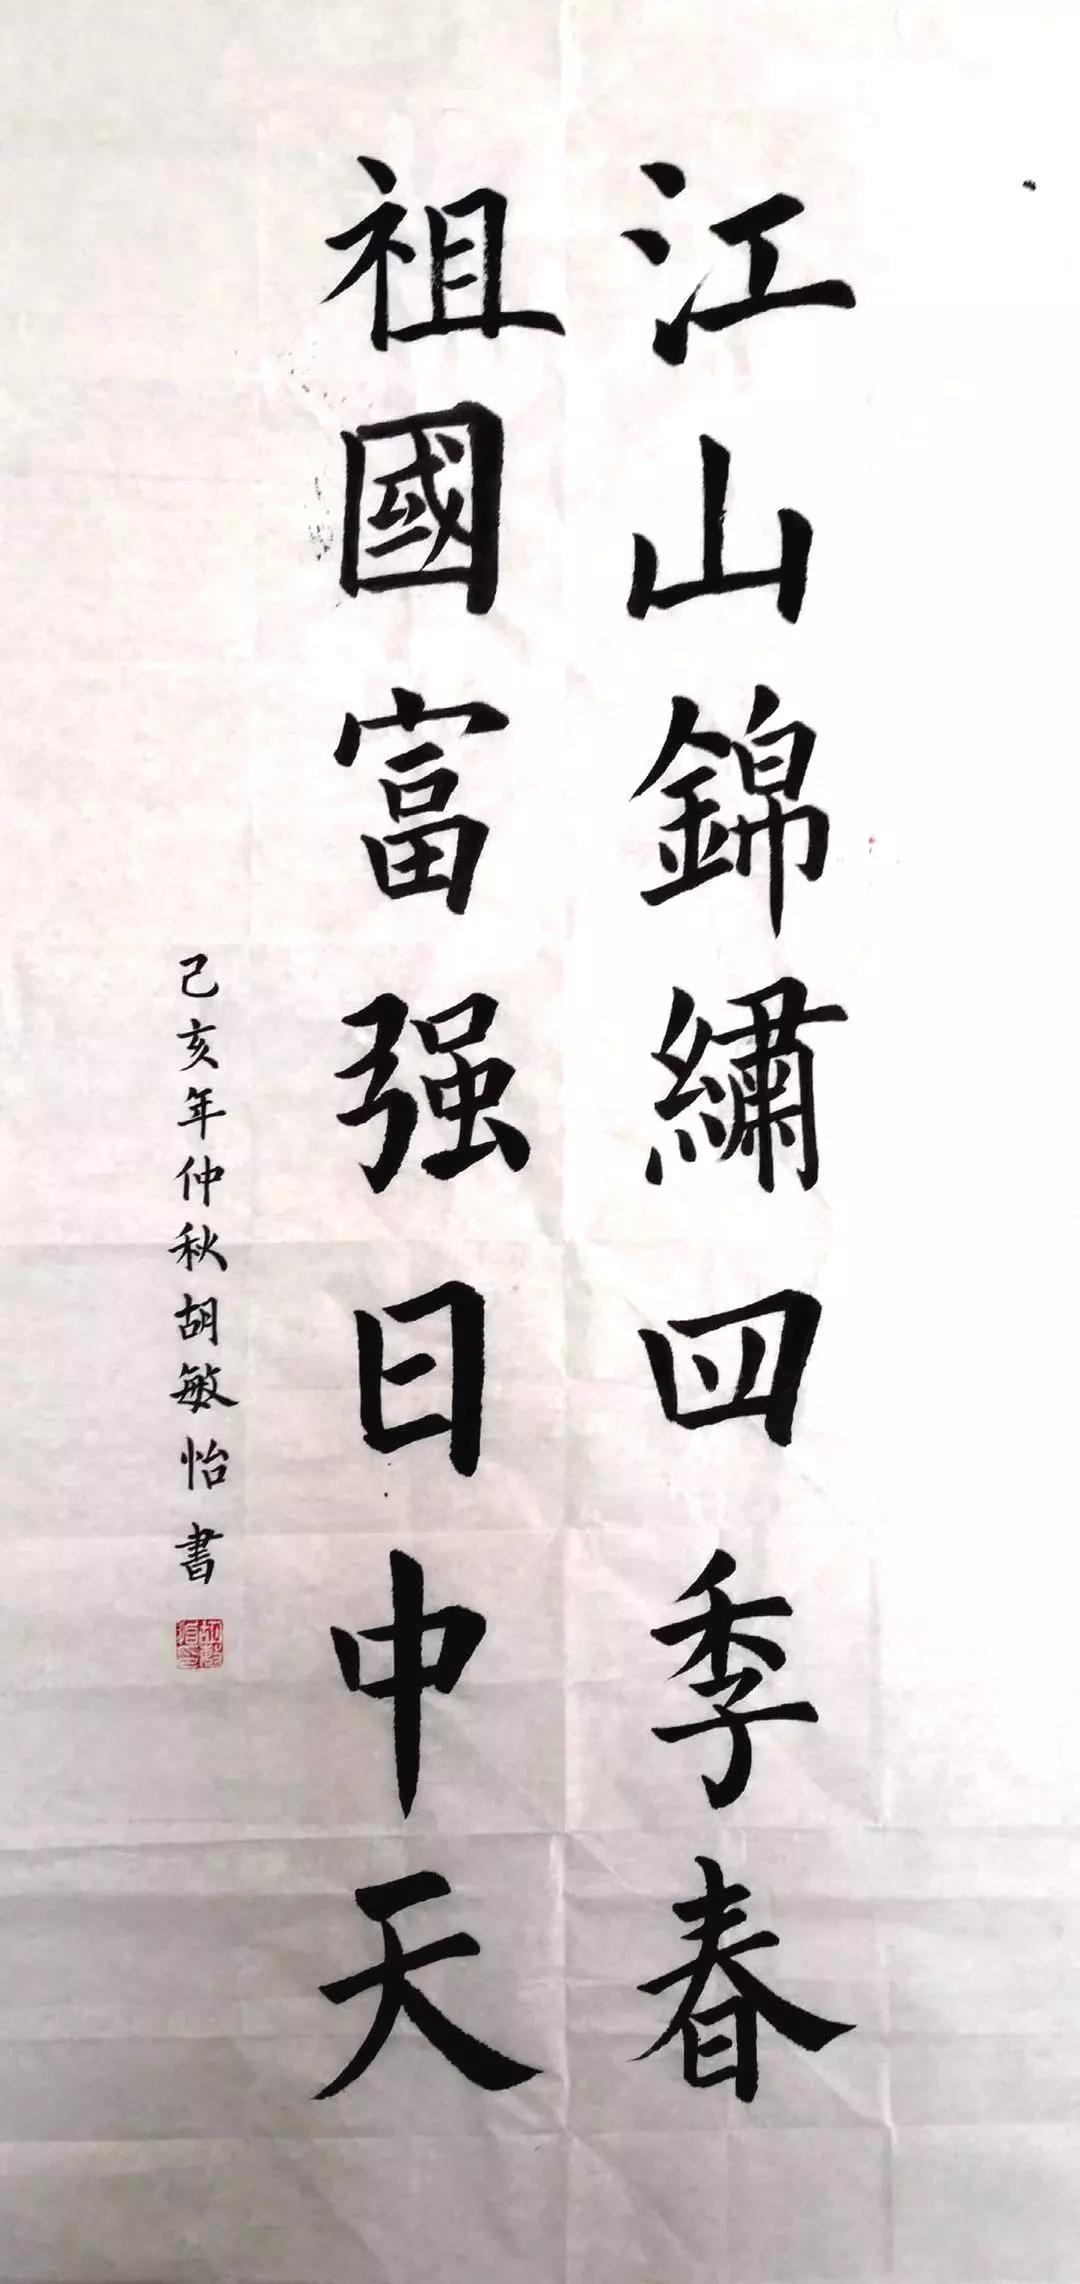 江山錦繡四季春
祖國富强日中天
己亥年仲秋胡敏怡書